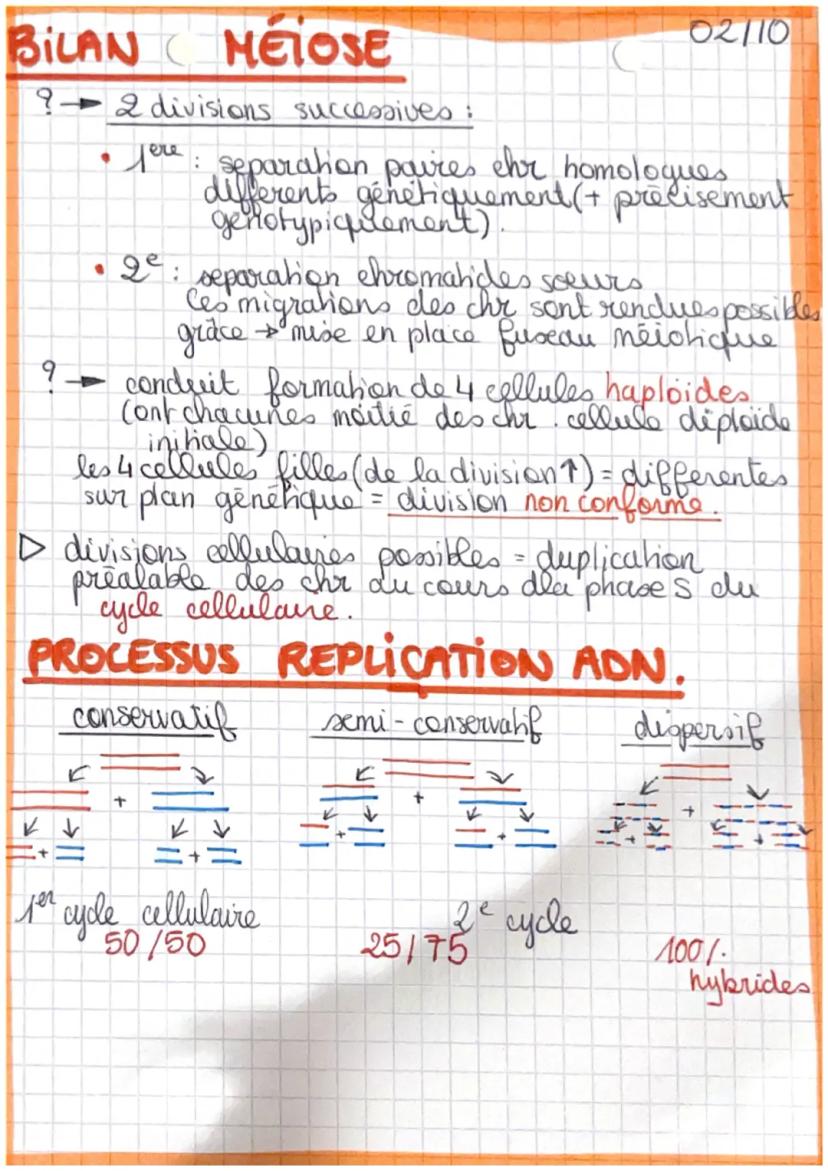 02/10
BILAN MÉIOSE
? → 2 divisions successives :
• 1ere : separation paires chr homologues
differents génétiquement (+ précisement
génotypiquement).
• 2e : separation chromatides soeurs
Ces migrations des chr sont rendues possibles
grâce → mise en place fuseau méiotique
? → conduit formation de 4 cellules haploïdes
(ont chacunes moitié des chr. cellule diploide
initiale)
les 4 cellules filles (de la division ↑) = differentes
sur plan génétique = division non conforme.
▷ divisions cellulaires possibles = duplication
préalable des chr au cours dla phase S du
cycle cellulaire.
PROCESSUS REPLICATION ADN.
conservatif semi-conservatif dispersif
+ + +
+ + + + + +
1er cycle cellulaire 2e cycle
50/50 25/75 100%
hybrides